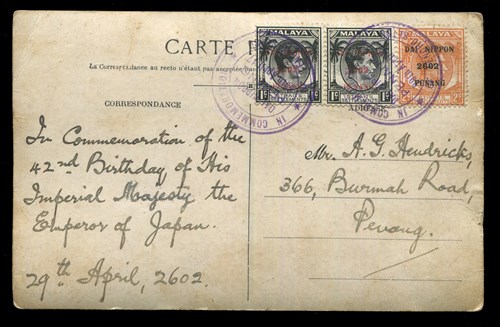 CARTE P
La Correspondance au recto n'étant pas acceptée
CORRESPONDANCE
MALAYA
1c 1c
MALAYA
1c 1c
MALAYA
DAI NIPPON
2602
PENANG
IN COMMEMO
In Commemoration of the
42nd Birthday of His
Imperial Majesty the
Emperor of Japan.
29th April, 2602.
Mr. A. G. Hendricks,
366, Burmah Road,
Penang.